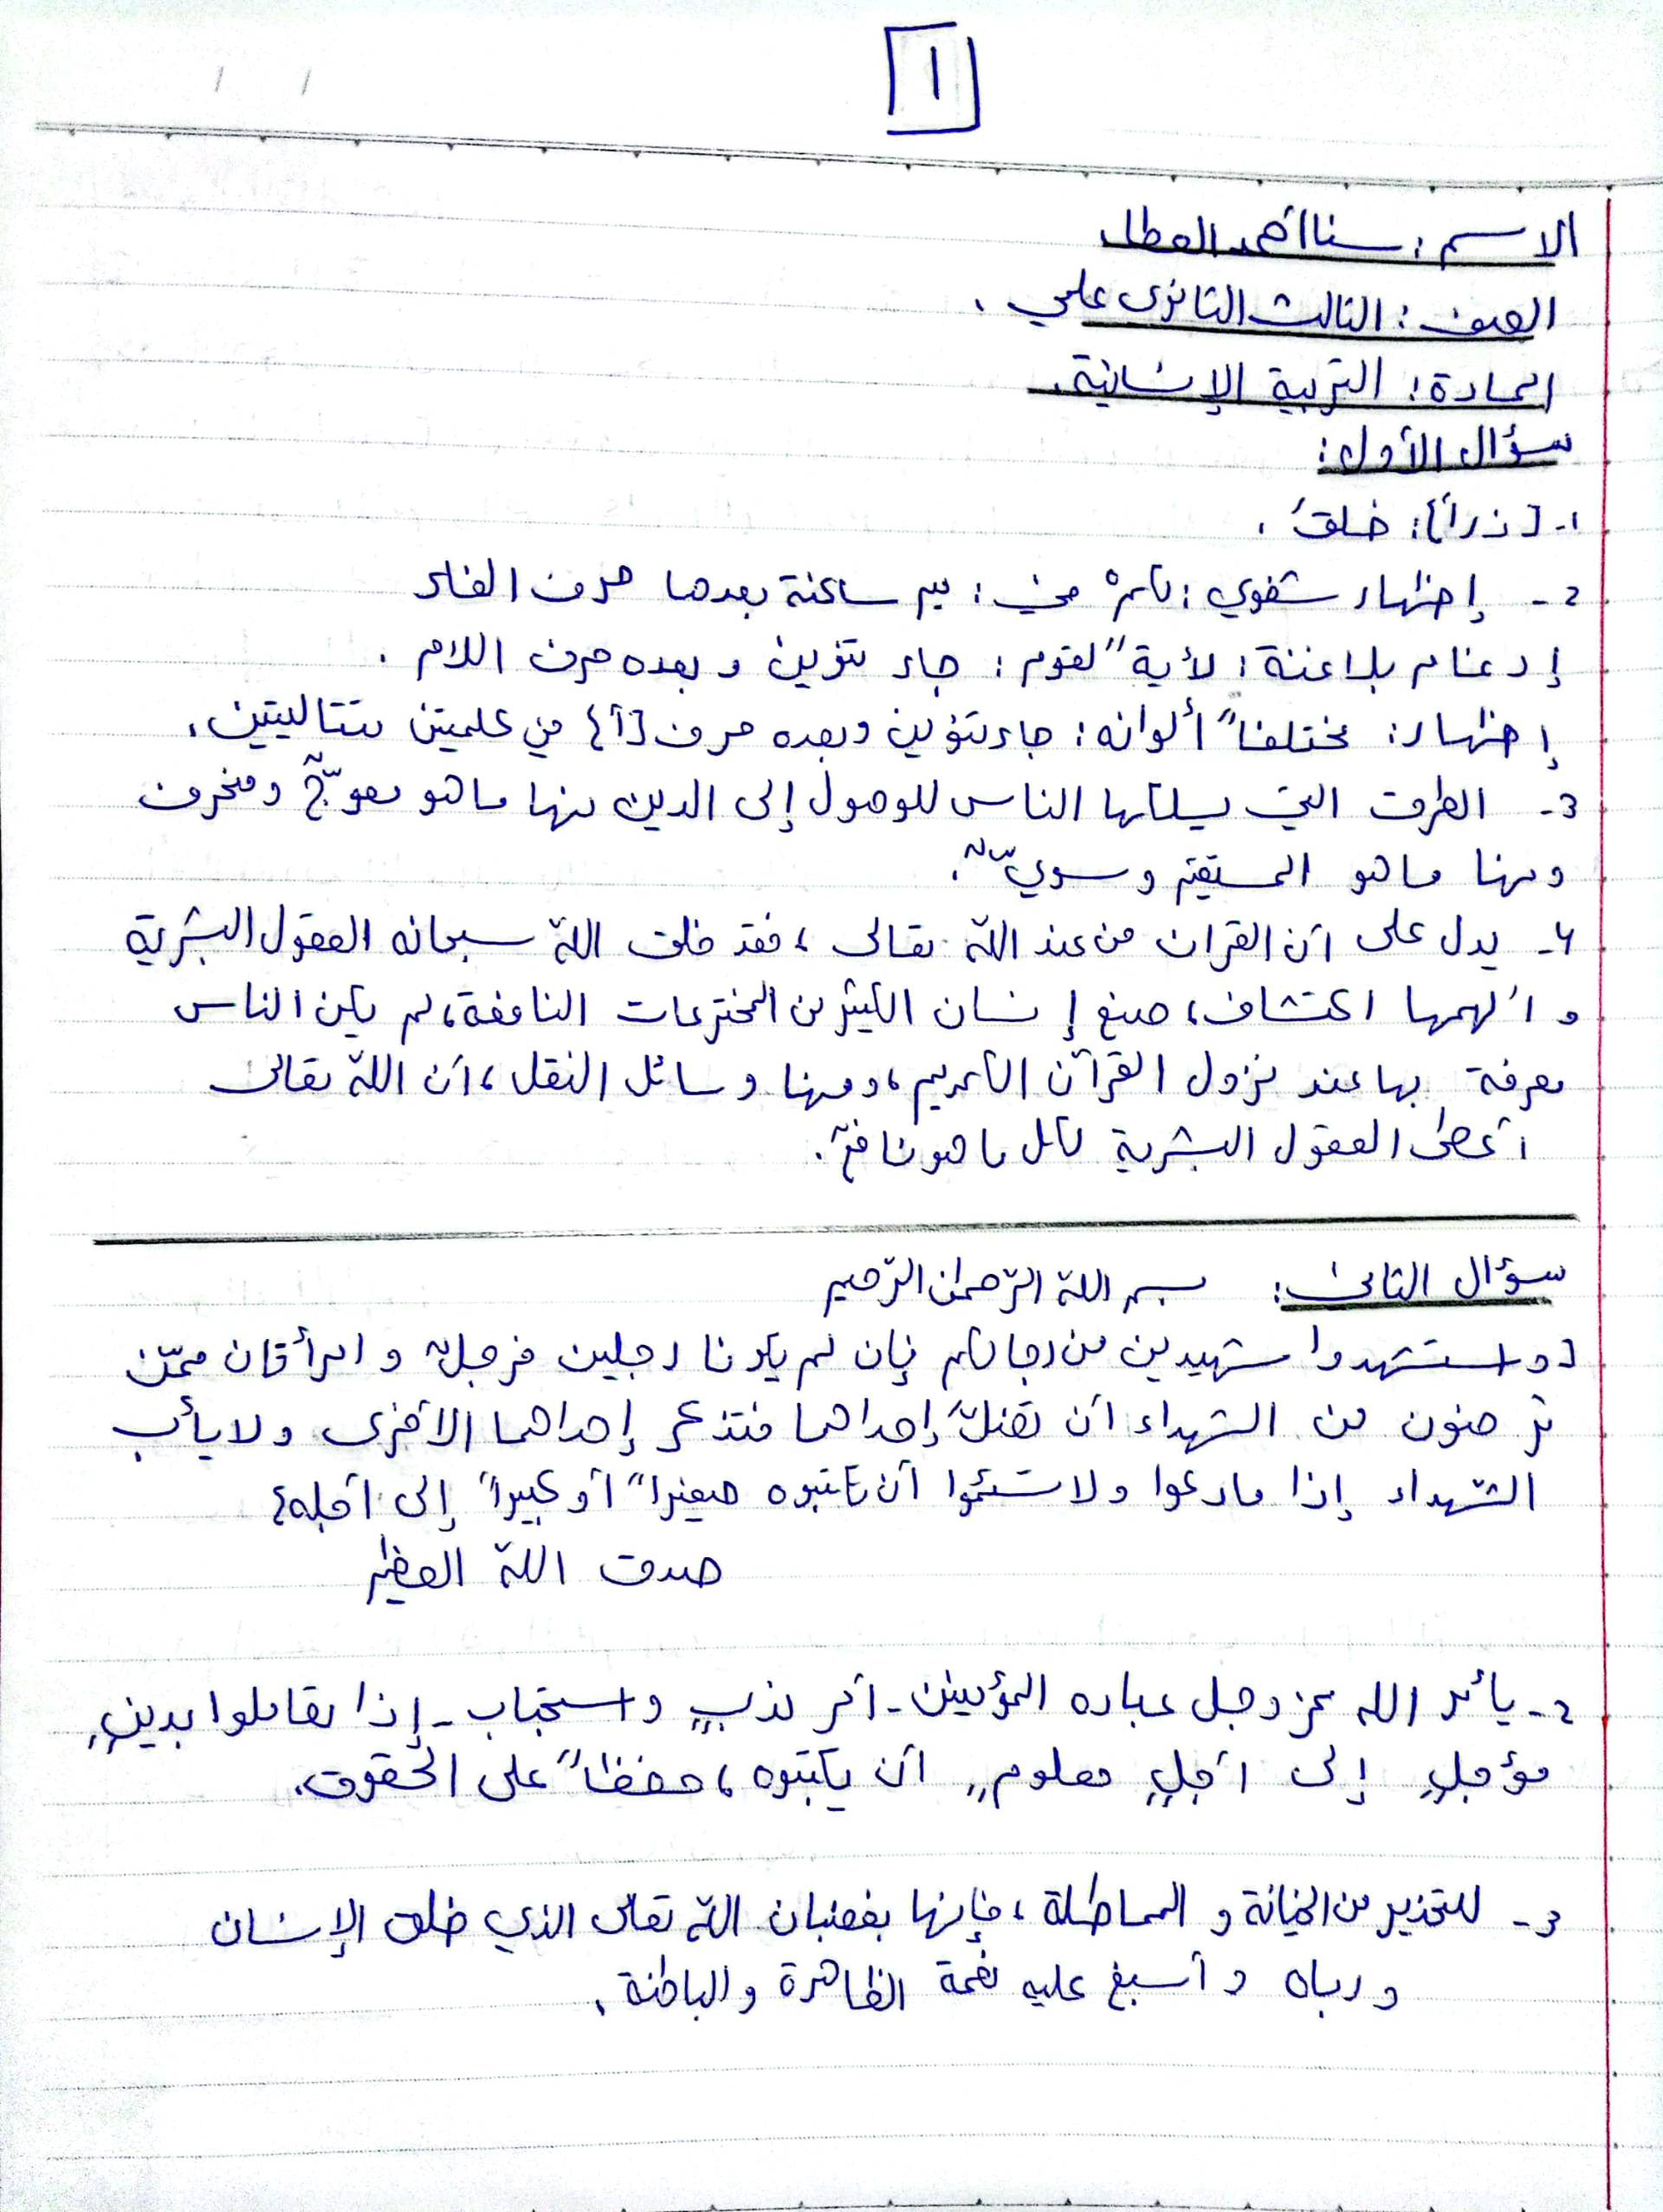 1
الاسم: سنا أحمد العطار
الصف: الثالث الثانوي علمي.
المادة: التربية الإنسانية.
سؤال الأول:
1- {ذرأ}: خلق.
2- إظهار شفوي: لكمْ في: ميم ساكنة بعدها حرف الفاء
إدغام بلا غنة: لأيةً لقوم: جاء تنوين وبعده حرف اللام.
إظهار: مختلفاً ألوانه: جاء تنوين وبعده حرف {أ} في كلمتين متتاليتين.
3- الطرق التي يسلكها الناس للوصول إلى الدين منها ما هو معوجٌّ ومنحرف
ومنها ما هو المستقيم وسويٌّ.
4- يدل على أن القران من عند اللّه تعالى، فقد خلق اللّه سبحانه العقول البشرية
وألهمها اكتشاف، صنع إنسان الكثير من المخترعات النافعة، لم يكن الناس
معرفة بها عند نزول القرآن الكريم، ومنها وسائل النقل، أن اللّه تعالى
أعطى العقول البشرية لكل ما هو نافع.
سؤال الثاني: بسم اللّه الرّحمن الرّحيم
{و استشهدوا شهيدين من رجالكم فإن لم يكونا رجلين فرجلٌ و امرأتان ممّن
ترضون من الشهداء أن تضلّ إحداهما فتذكر إحداهما الأخرى ولا يأب
الشّهداء إذا ما دعوا ولا تسئموا أن تكتبوه صغيراً أو كبيراً إلى أجله}
صدق اللّه العظيم
2- يأمر الله عز وجل عباده المؤمنين - أمر ندبٍ واستحباب - إذا تعاملوا بدينٍ
مؤجلٍ إلى أجلٍ معلومٍ أن يكتبوه، حفظاً على الحقوق.
3- للتحذير من الخيانة و المماطلة، فإنها يغضبان اللّه تعالى الذي خلق الإنسان
ورباه وأسبغ عليه نعمة الظاهرة والباطنة.